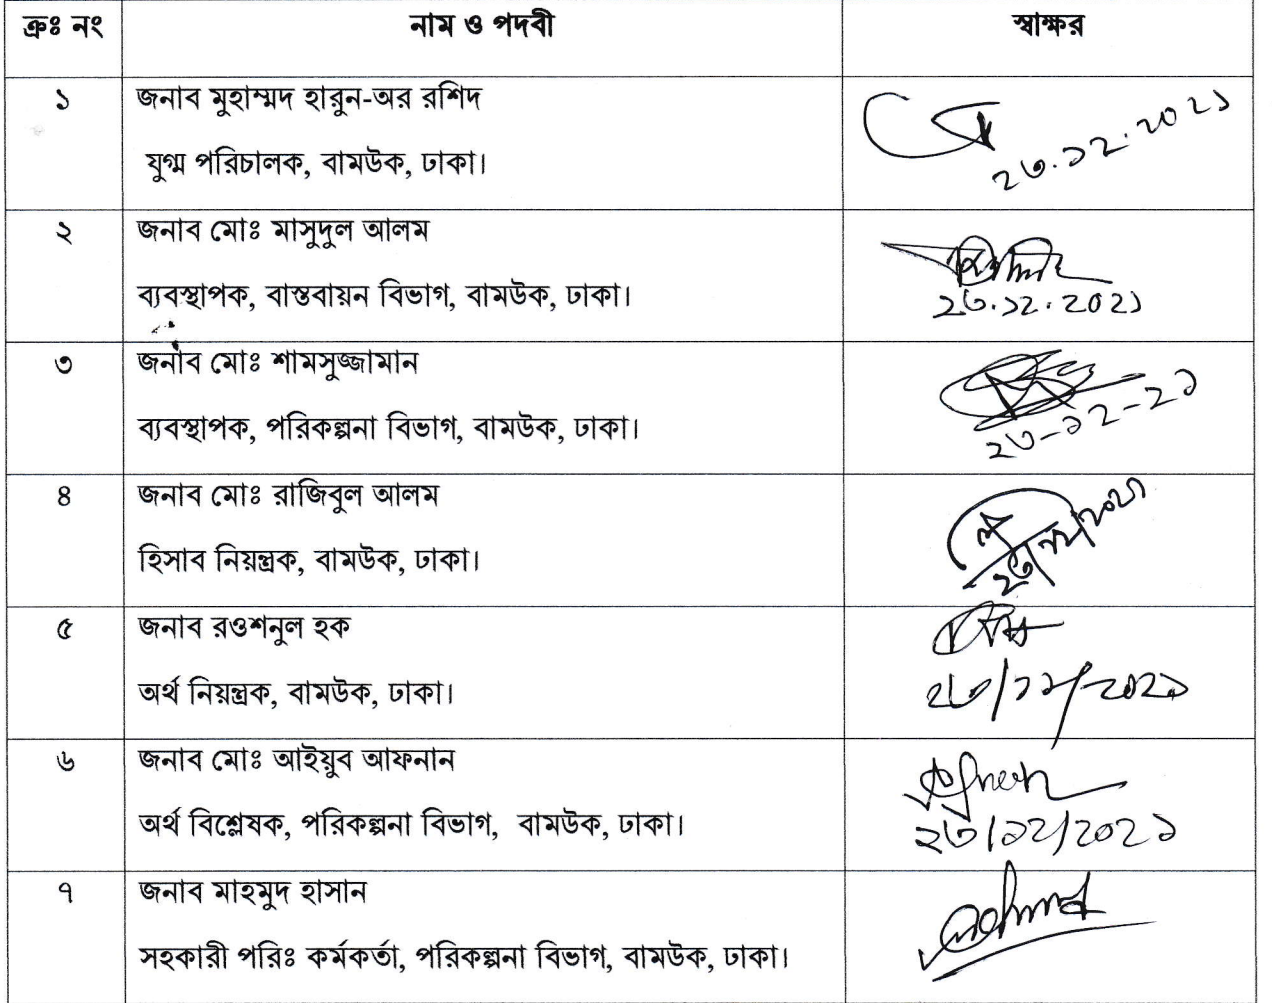 ক্রঃ নং নাম ও পদবী স্বাক্ষর
১ জনাব মুহাম্মদ হারুন-অর রশিদ
যুগ্ম পরিচালক, বামউক, ঢাকা।
২৩.১২.২০২১
২ জনাব মোঃ মাসুদুল আলম
ব্যবস্থাপক, বাস্তবায়ন বিভাগ, বামউক, ঢাকা।
২৩.১২.২০২১
৩ জনাব মোঃ শামসুজ্জামান
ব্যবস্থাপক, পরিকল্পনা বিভাগ, বামউক, ঢাকা।
২৩-১২-২১
৪ জনাব মোঃ রাজিবুল আলম
হিসাব নিয়ন্ত্রক, বামউক, ঢাকা।
২৩/১২/২০২১
৫ জনাব রওশনুল হক
অর্থ নিয়ন্ত্রক, বামউক, ঢাকা।
২৩/১২/২০২১
৬ জনাব মোঃ আইয়ুব আফনান
অর্থ বিশ্লেষক, পরিকল্পনা বিভাগ, বামউক, ঢাকা।
২৩/১২/২০২১
৭ জনাব মাহমুদ হাসান
সহকারী পরিঃ কর্মকর্তা, পরিকল্পনা বিভাগ, বামউক, ঢাকা।